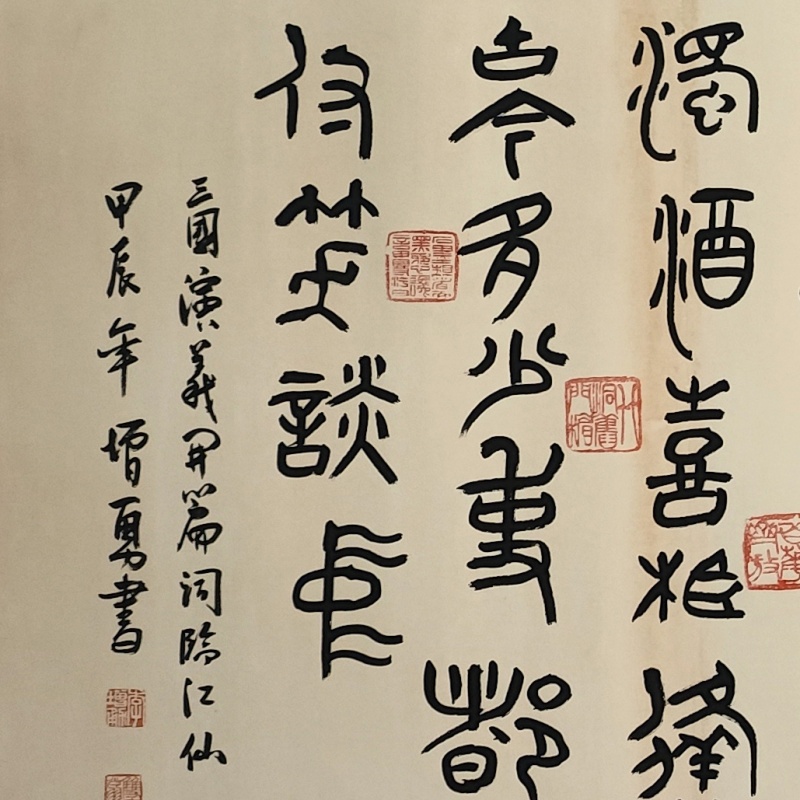 濁酒喜相逢
古今多少事都
付笑談中
三國演義開篇詞臨江仙
甲辰年增勇書